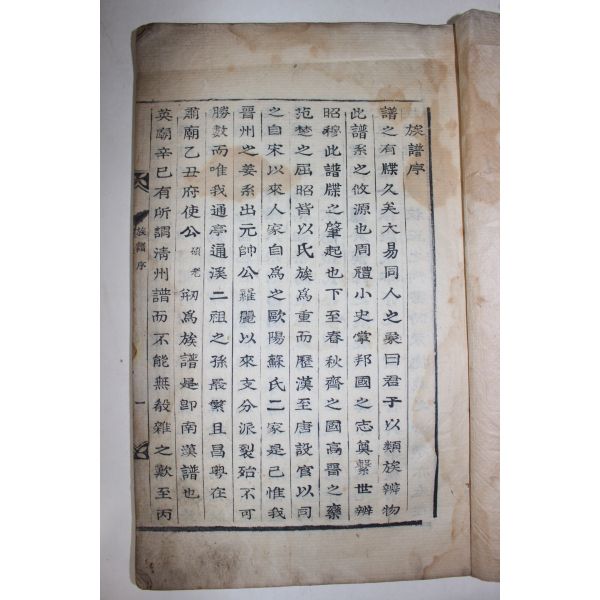 族譜序
譜之有牒久矣大易同人之象曰君子以類族辨物
此譜系之攸源也周禮小史掌邦國之志奠繫世辨
昭穆此譜牒之肇起也下至春秋齊之國高晋之欒
范楚之屈昭皆以氏族爲重而歷漢至唐設官以司
之自宋以來人家自爲之歐陽蘇氏二家是已惟我
晋州之姜系出元帥公羅麗以來支分派裂殆不可
勝數而唯我通亭通溪二祖之孫最繁且昌粤在
肅廟乙丑府使公碩老剏爲族譜是卽南漢譜也
英廟辛巳有所謂淸州譜而不能無殽雜之歎至丙
族譜序
一